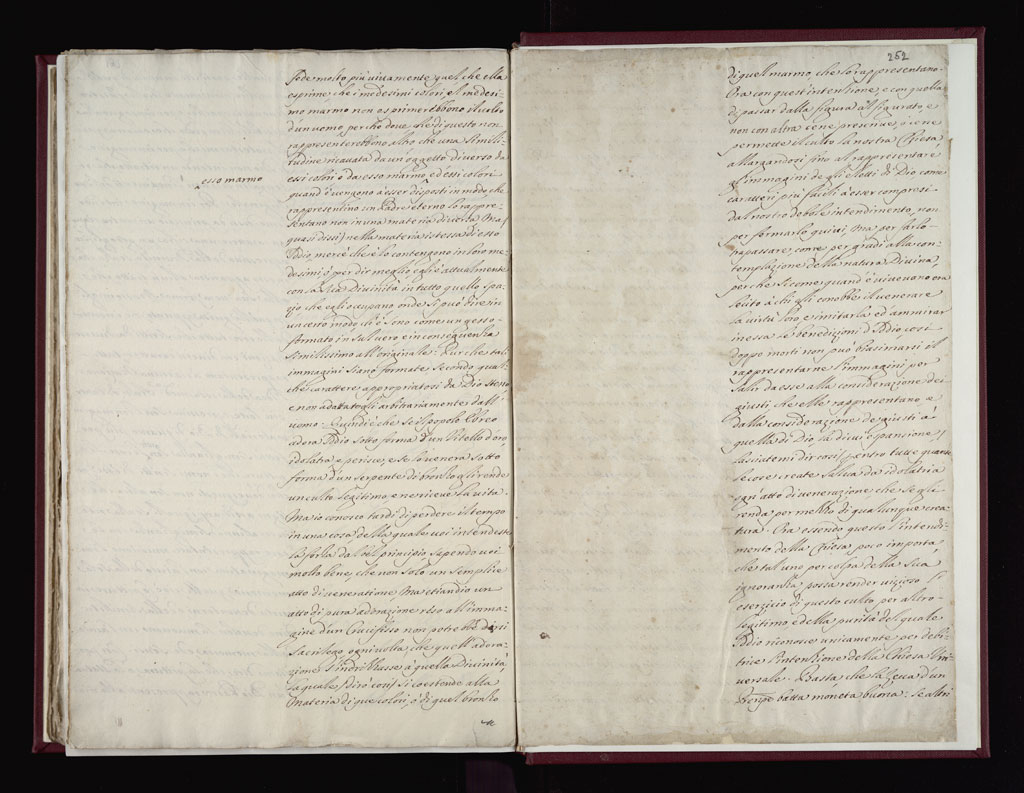 fede molto più vivamente quel che ella
esprime che i medesimi colori, el medesi-
mo marmo non esprimerebbono il volto
d'un uomo, perchè dove che di questo non
rappresenterebbono altro che una simili-
tudine ricavata da un'oggetto diverso da
essi colori o da esso marmo ed essi colori
esso marmo
quand'è vengono à esser disposti in modo che
rappresentino un Padre eterno lo rappre-
sentano non in una materia diversa ma (
quasi dissi) nella materia istessa di esso
Iddio, mercè ch'è lo contengono in loro me-
desimi, ò per dir meglio egli è attualmente
con la sua Divinità in tutto quello spa-
zio che egli occupano onde si può dire in
un certo modo ch'è sono come un gesso
formato in sul vero e in conseguenza
similissimo all'originale. Pur che tali
immagini siano formate secondo qual-
che carattere appropriatosi da Dio stesso
e non adattatogli arbitrariamente dall'
uomo. Quindi è che se il popolo Ebreo
adora Iddio sotto forma d'un Vitello d'oro
idolatra e perisce, e se lo venera sotto
forma d'un serpente di bronzo gli rende
un culto legitimo, e ne riceve la vita.
Ma io conosco tardi di perdere il tempo
in una cosa della quale voi intendeste
la forza dal bel principio sapendo voi
molto bene, che non solo un semplice
atto di venerazione, ma etiandio un
atto di pura adorazione reso all'imma-
gine d'un Crucifisso non potrebbe dirsi
sacrilego ogni volta che quell'adora-
zione s'indrizzasse à quella Divinità,
la quale (dirò così) si coestende alla
materia di que colori, ò di quel bronzo
252
di quel marmo, che lo rappresentano.
Ora con quest'intenzione, e con quella
di passar dalla figura al figurato e
non con altra ce ne prescrive, ò ce ne
permette il culto la nostra Chiesa,
allargandosi fino al rappresentare
l'immagini de gli eletti di Dio come
caratteri più facili à esser compresi
dal nostro debole intendimento, non
per formarlo quivi, ma per farlo
trapassare, come per gradi alla con-
templazione della natura Divina,
perchè siccome quand'è vivevano era
lecito à chi gli conobbe il venerare
la virtù loro e imitarla, ed ammirar
in essa le benedizioni d'Iddio, così
doppo morti non può biasimarsi il
rappresentarne l'immagini per
salir da esse alla considerazione dei
giusti che elle rappresentano e
dalla considerazione de giusti à
quella di Dio, la di cui espansione (
lasciatemi dir così) entro tutte quante
le cose create salva da idolatria
ogni atto di venerazione, che se gli
renda per mezzo di qualunque crea-
tura. Ora essendo questo l'intendi-
mento della Chiesa poco importa,
che tal uno per colpa della sua
ignoranza possa render vizioso l'
esercizio di questo culto, per altro
legitimo, e della purità del quale
Iddio riconosce unicamente per deffi-
trice l'intenzione della Chiesa Uni-
versale. Basta che la zecca d'un
Prenpe batta moneta buona: se altri